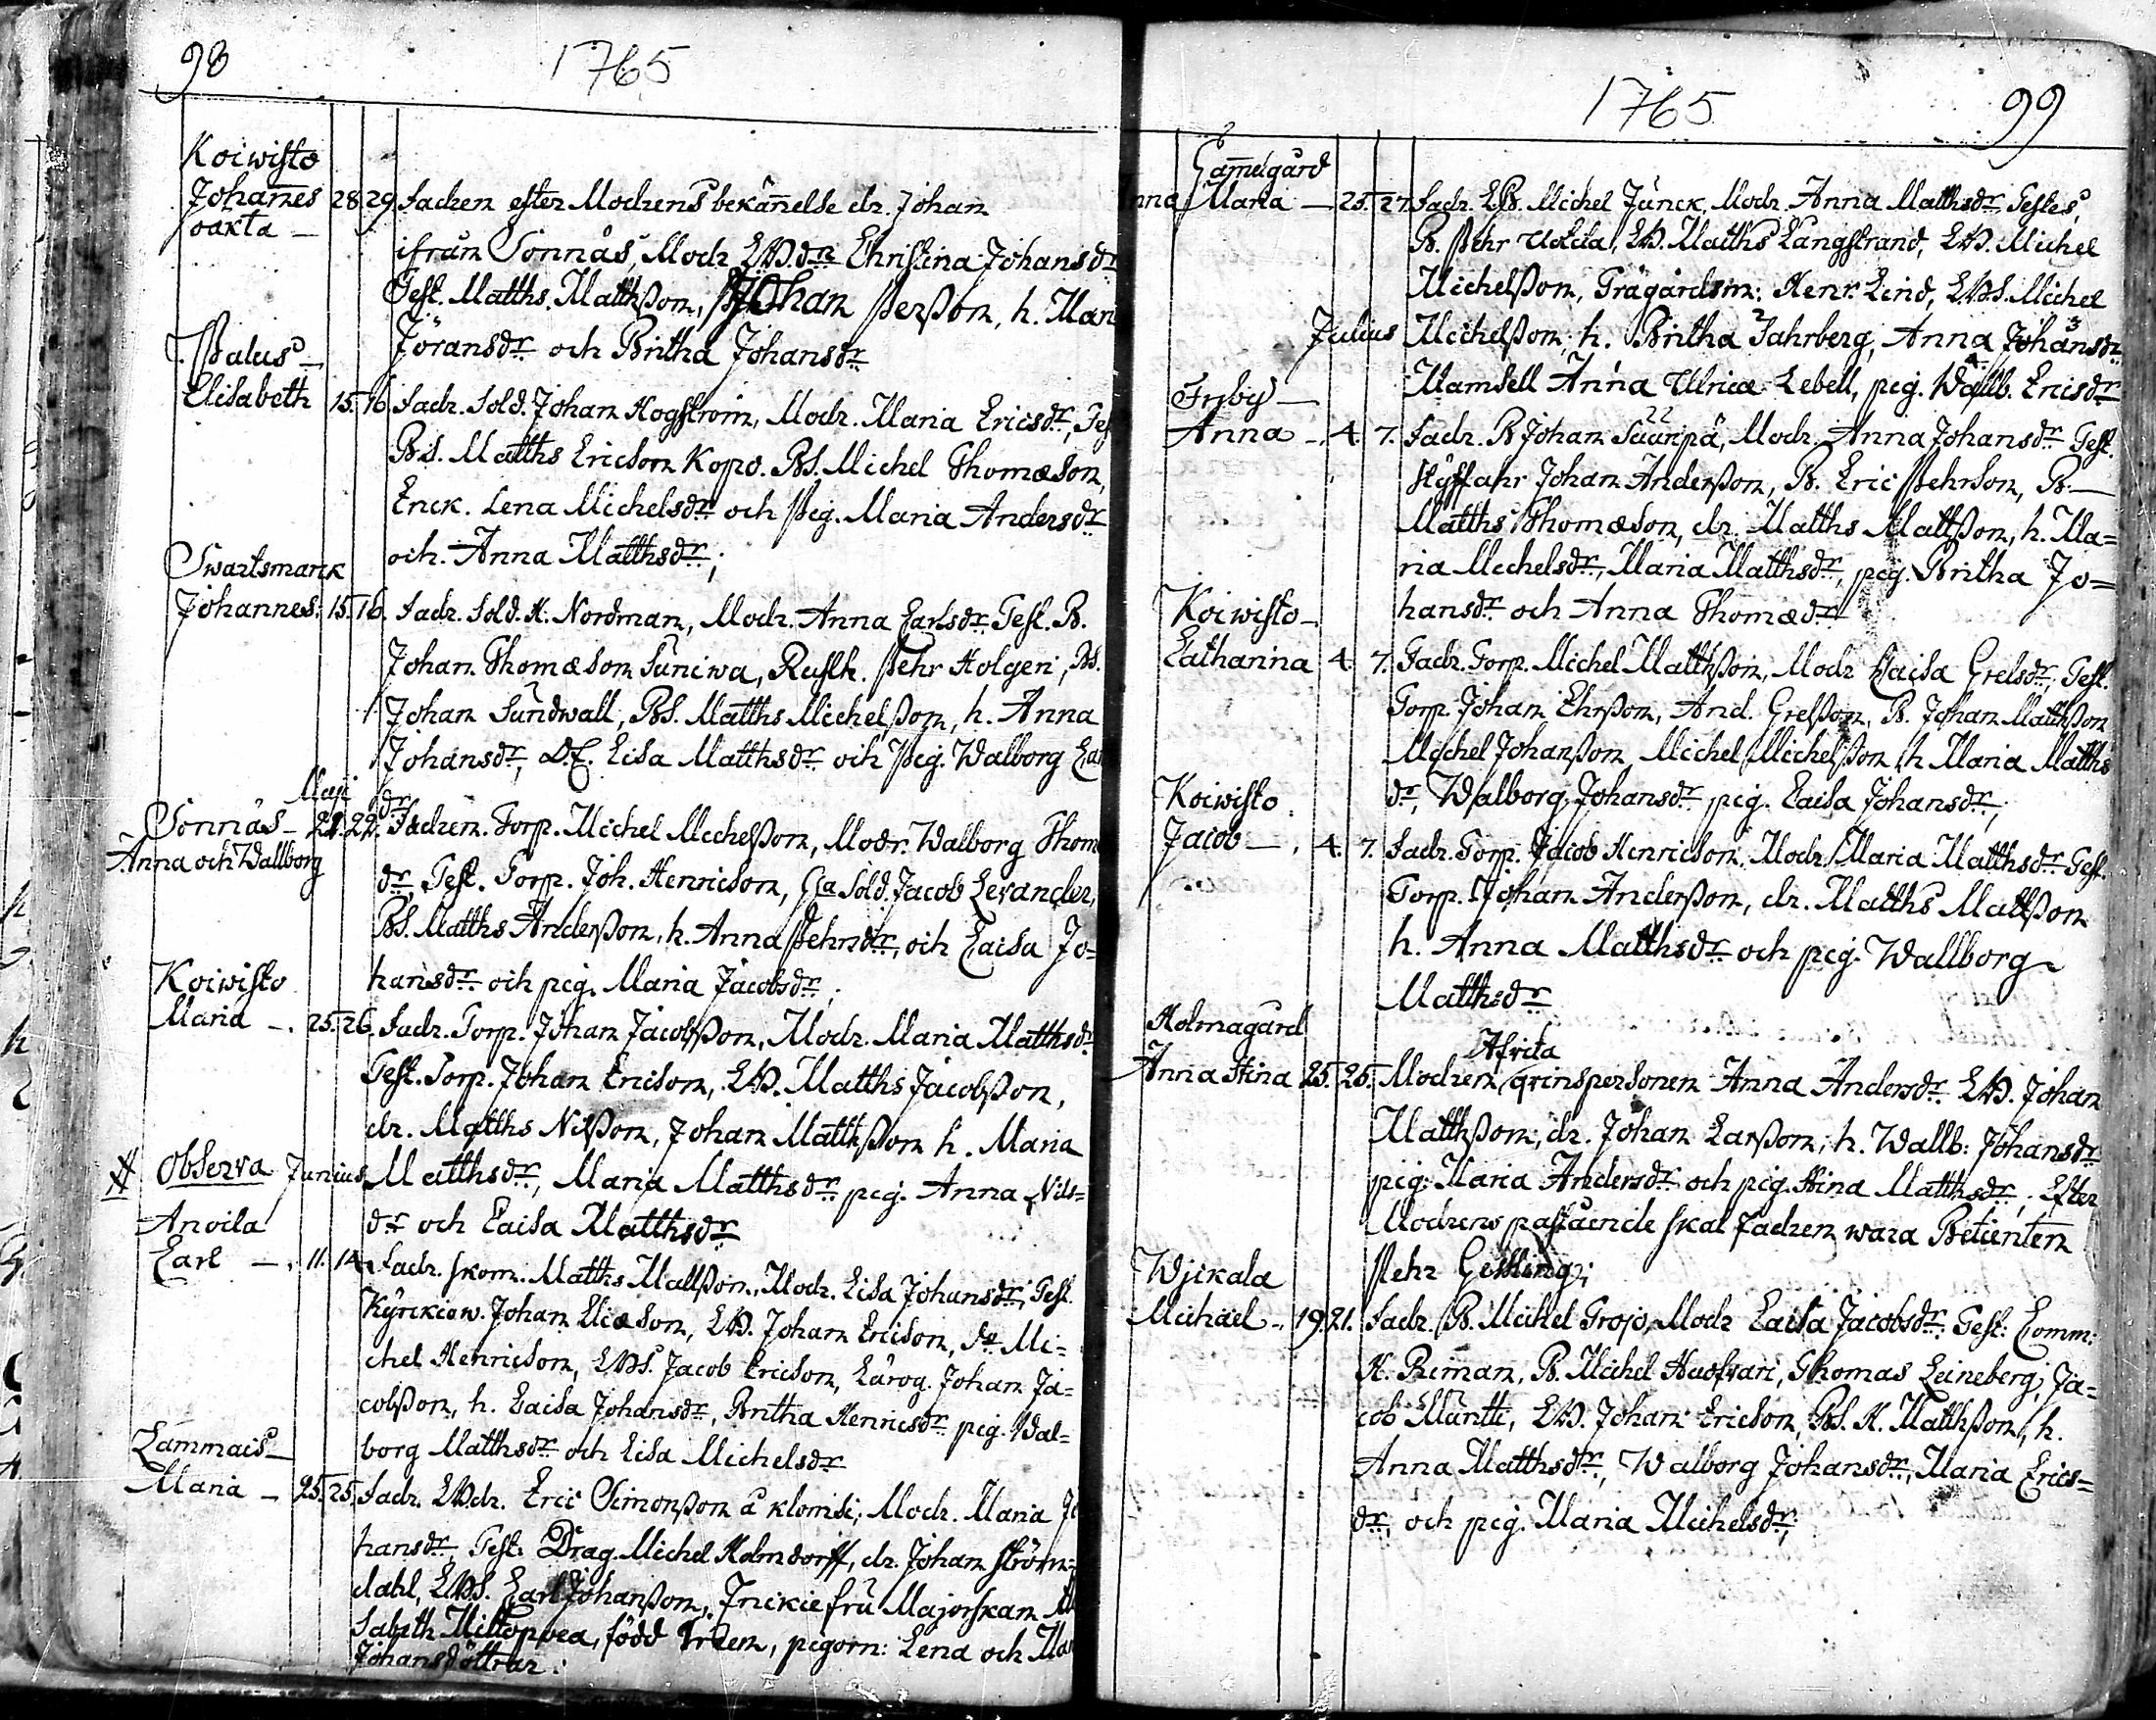 98
1765
Koiwisto
Johannes 28. 29. Fadren efter Modrens bekännelse dr. Johan
oäkta —
ifrån Sonnäs, Modr LBdr Christina Johansdr
Test. Matths. Matthsson, Johan Persson, h. Mari
Jöransdr och Britha Johansdr
Palus —
Elisabeth 15. 16. Fadr. Sold. Johan Hogström, Modr. Maria Ericsdr, Tes
BS. Matths Ericson Kopo. BS. Michel Thomæson,
Enck. Lena Michelsdr och pig. Maria Andersdr
och Anna Matthsdr;
Swartsmark
Johannes. 15. 16. Fadr. Sold. H. Nordman, Modr. Anna Carlsdr Test. B.
Johan Thomæson Suniwa, Rusth. Pehr Holgeri, BS.
Johan Sundwall, BS. Matths Michelsson, h. Anna
Johansdr, Lisa Matthsdr och pig. Walborg Car
dr
Maji
Sonnäs — 21. 22. Fadren. Torp. Michel Michelsson, Modr. Walborg Thom
Anna och Wallborg
dr, Test. Torp. Joh. Henricson, Sold. Jacob Levander,
BS. Matths Andersson, h. Anna Pehrsdr, och Caisa Jo=
hansdr och pig. Maria Jacobsdr;
Koiwisto
Maria — 25. 26. Fadr. Torp. Johan Jacobsson, Modr. Maria Matthsdr
Test. Torp. Johan Ericson, LB. Matths Jacobsson,
dr. Matths Nilsson, Johan Matthsson h. Maria
Observa Junius Matthsdr, Maria Matthsdr pig. Anna Nils=
Anoila
dr och Caisa Matthsdr
Carl — 11. 14. Fadr. skom. Matths Mattsson, Modr. Lisa Johansdr, Test.
Kyrckiow. Johan Eliæson, LB. Johan Ericson, Mi=
chel Henricson, LBS. Jacob Ericson, Johan Ja=
cobsson, h. Caisa Johansdr, Britha Henricsdr pig. Wal=
borg Matthsdr och Lisa Michelsdr
Lammais —
Maria — 25. 25. Fadr. LBdr. Eric Simonsson å klomsi, Modr. Maria Jo
hansdr, Test: Drag. Michel Holmdorff, dr. Johan Ström=
dahl, LBS. Carl Johansson, fru Majorskan
född pigorn: Lena och Mar
Johansdöttrar:
1765
99
Gamelgård
Anna Maria — 25. 27. Fadr. LB. Michel Junck, Modr. Anna Matthsdr Testes,
B. Pehr Uotila, LB. Matths Långstrand, LB. Michel
Michelsson, Trägårdsm: Henr. Lind, LBS. Michel
Julius Michelsson, h. Britha Fahrberg, Anna Johansdr
Mamsell Anna Ulrica Lebell, pig. Wallb. Ericsdr
Fryby —
Anna — 4. 7. Fadr. B Johan Suunpä, Modr. Anna Johansdr Test.
Johan Andersson, B. Eric Pehrson, B. —
Matths Thomæson, dr. Matths Mattsson, h. Ma=
ria Michelsdr, Maria Matthsdr, pig. Britha Jo=
hansdr och Anna Thomædr
Koiwisto —
Catharina 4. 7. Fadr. Torp. Michel Matthsson, Modr Caisa Grelsdr, Test.
Torp. Johan Ehrsson, And. Grelsson, B. Johan Matthsson
Michel Johansson, Michel Michelsson h Maria Matths
dr, Walborg Johansdr pig. Caisa Johansdr,
Koiwisto
Jacob — 4. 7. Fadr. Torp. Jacob Henricson, Modr. Maria Matthsdr Test.
Torp. Johan Andersson, dr. Matths Mattsson
h. Anna Matthsdr och pig. Wallborg
Matthsdr
Holmagård
Afvita
Anna Stina 25. 25. Modren qvinspersonen Anna Andersdr. LB. Johan
Matthsson, dr. Johan Larsson, h. Wallb: Johansdr
pig: Maria Andersdr och pig. Stina Matthsdr; Efter
Modrens påstående skal Fadren wara Betienten
Pehr Gissling;
Wjikala
Michaël — 19. 21. Fadr. B. Michel Trojo, Modr Caisa Jacobsdr: Test: Comm:
H. Reman, B. Michel Huofvari, Thomas Leineberg, Ja=
cob Muntti, LB. Johan Ericson, BS. H. Matthsson, h.
Anna Matthsdr, Walborg Johansdr, Maria Erics=
dr, och pig. Maria Michelsdr,